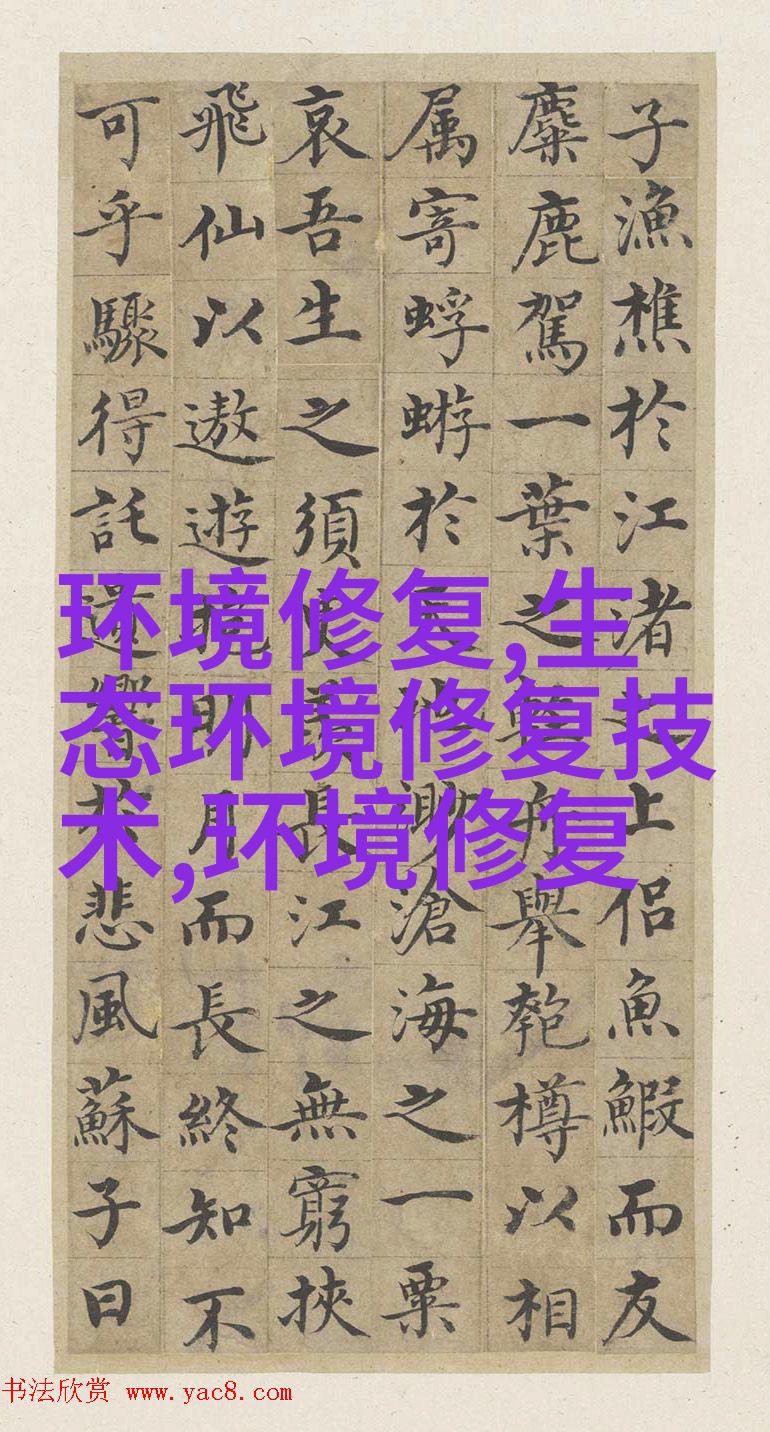 子漁樵於江渚之上侶魚鰕而友
麋鹿駕一葉之輕舟舉匏樽以相
属寄蜉蝣於天地渺滄海之一粟
哀吾生之須臾羨長江之無窮挾
飛仙以遨遊抱明月而長終知不
可乎驟得託遺響於悲風蘇子曰
环境修复,生
态环境修复技
术,环境修复
书法欣赏 www.yac8.com